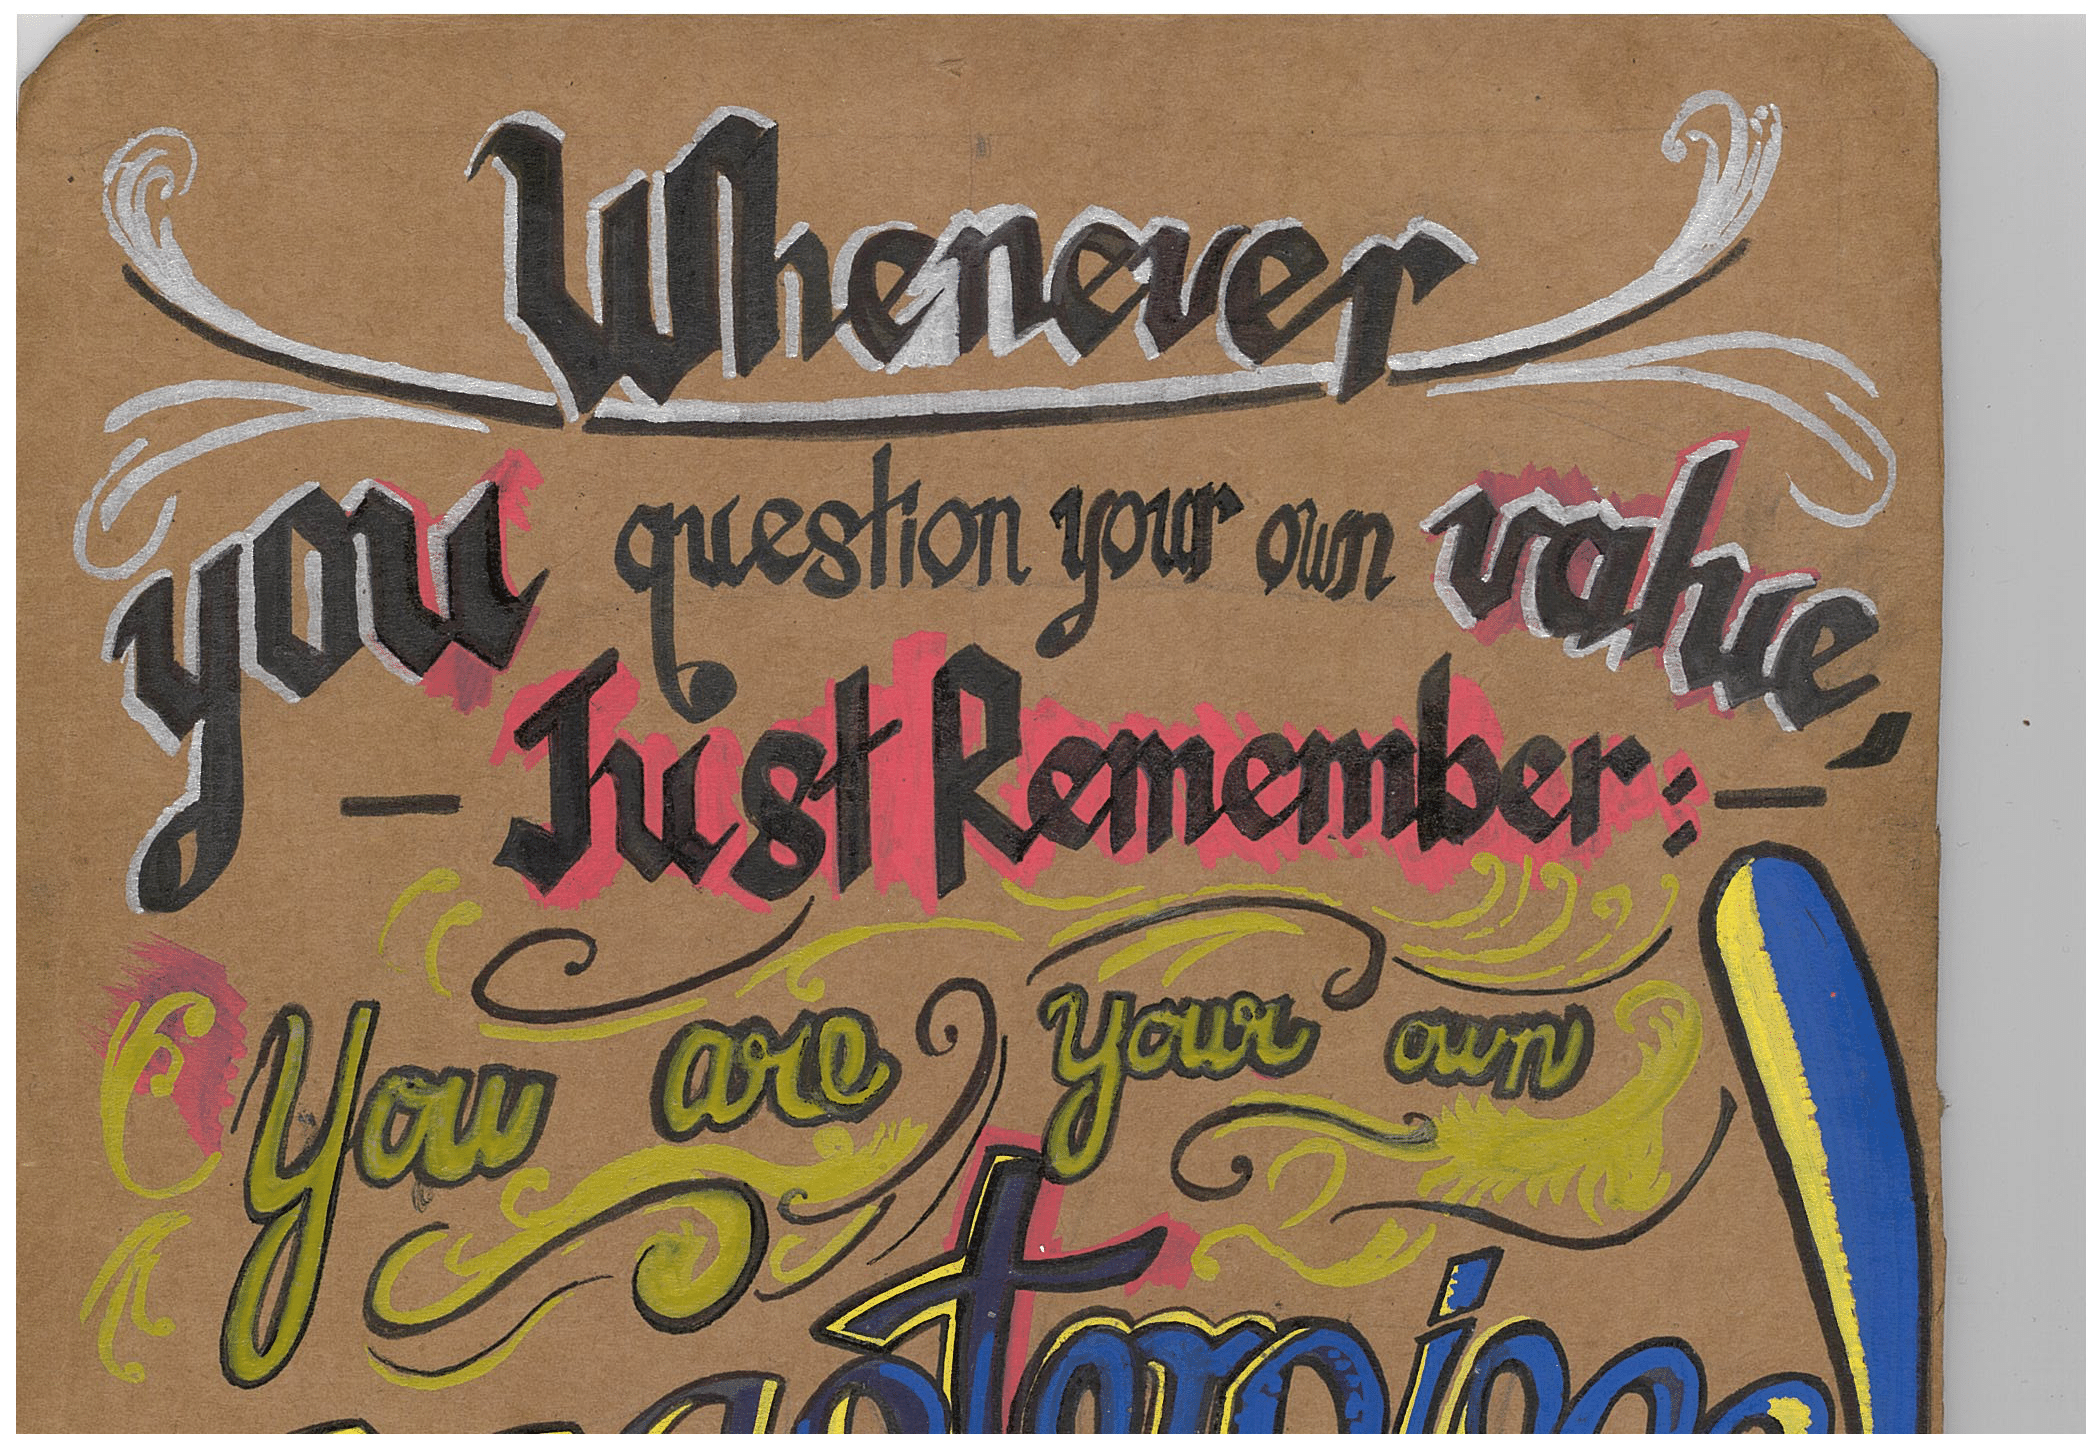 Whenever
you question your own value,
— Just Remember: —
You are your own